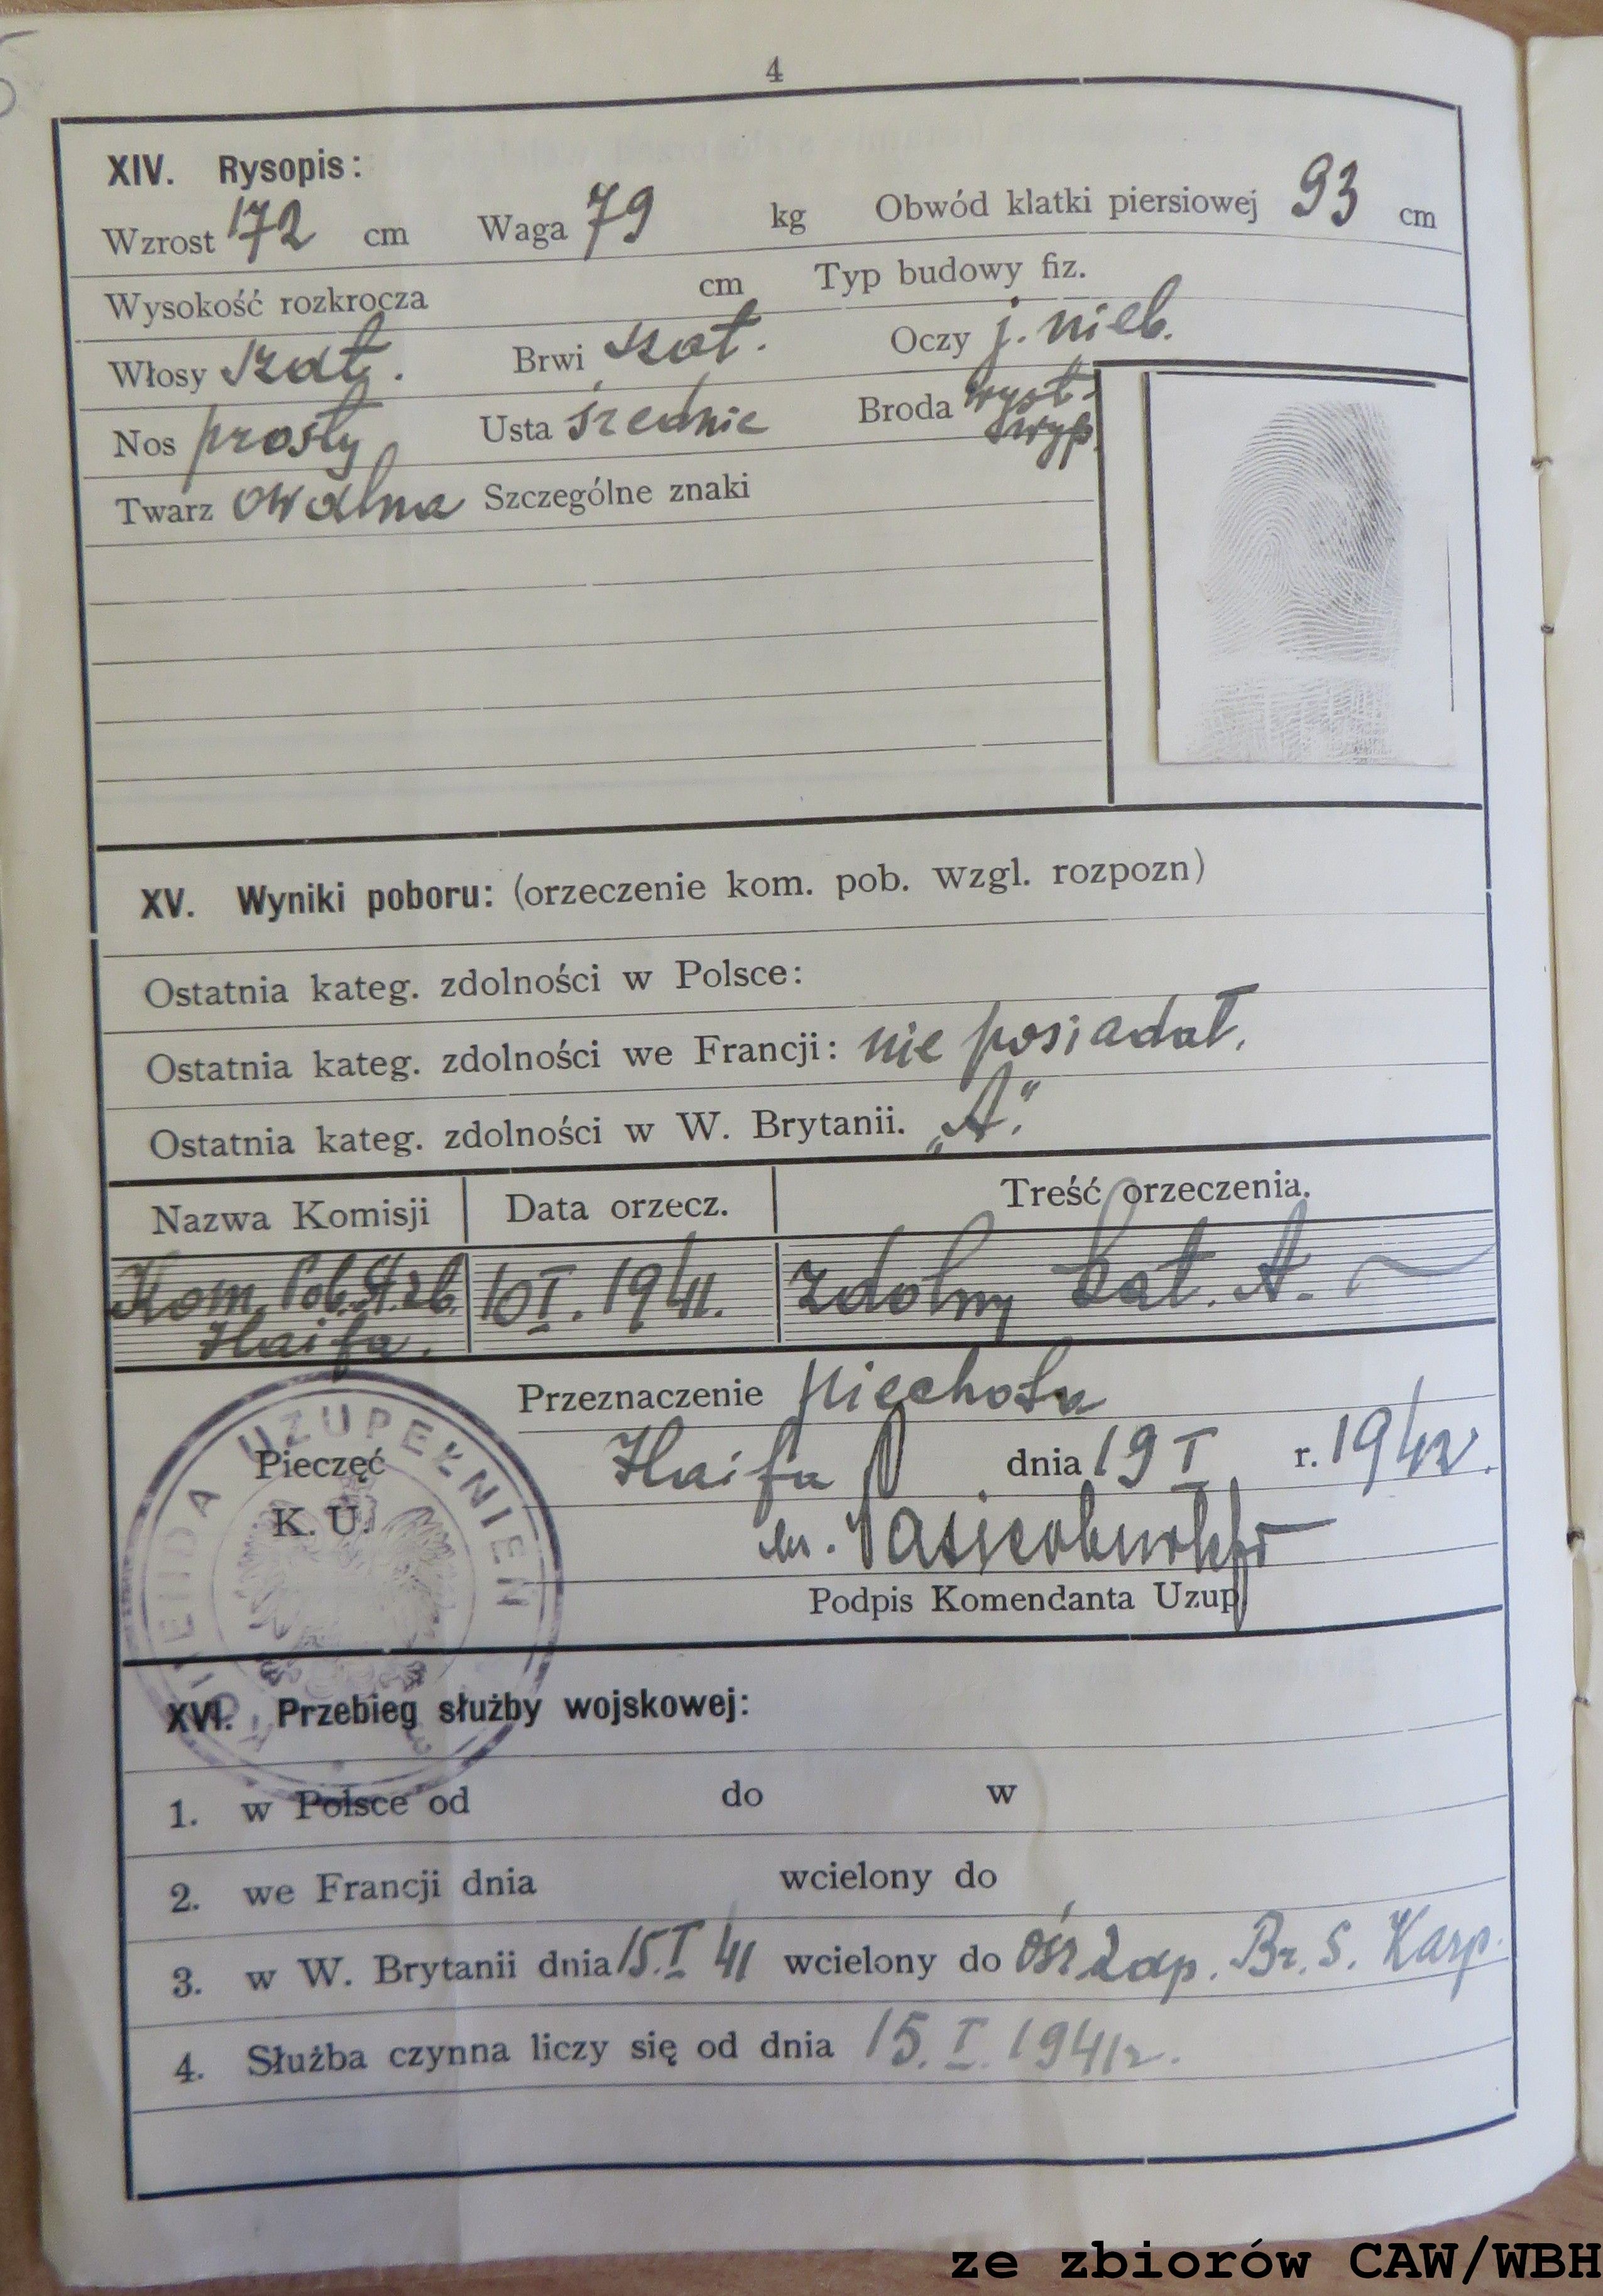 4
XIV. Rysopis:
Wzrost 172 cm Waga 79 kg Obwód klatki piersiowej 93 cm
Wysokość rozkrocza cm Typ budowy fiz.
Włosy szat. Brwi szat. Oczy j. nieb.
Nos prosty Usta średnie Broda wyst.
Twarz owalna Szczególne znaki
XV. Wyniki poboru: (orzeczenie kom. pob. wzgl. rozpozn)
Ostatnia kateg. zdolności w Polsce:
Ostatnia kateg. zdolności we Francji: nie posiadał.
Ostatnia kateg. zdolności w W. Brytanii. „A".
Nazwa Komisji Data orzecz. Treść orzeczenia.
Kom. Pob. 10 I. 1941. zdolny kat. A.
Haifa.
Przeznaczenie piechota
Haifa dnia 19 I r. 1942.
Pieczęć
K. U.
KOMENDA UZUPEŁNIEŃ
Podpis Komendanta Uzup.
XVI. Przebieg służby wojskowej:
1. w Polsce od do w
2. we Francji dnia wcielony do
3. w W. Brytanii dnia 15.I 41 wcielony do Ośr Zap. Br. S. Karp.
4. Służba czynna liczy się od dnia 15. I. 1941 r.
ze zbiorów CAW/WBH